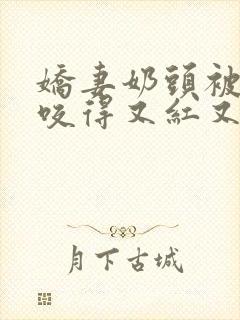 嬌妻奶頭被
咬得又紅又
月下古城